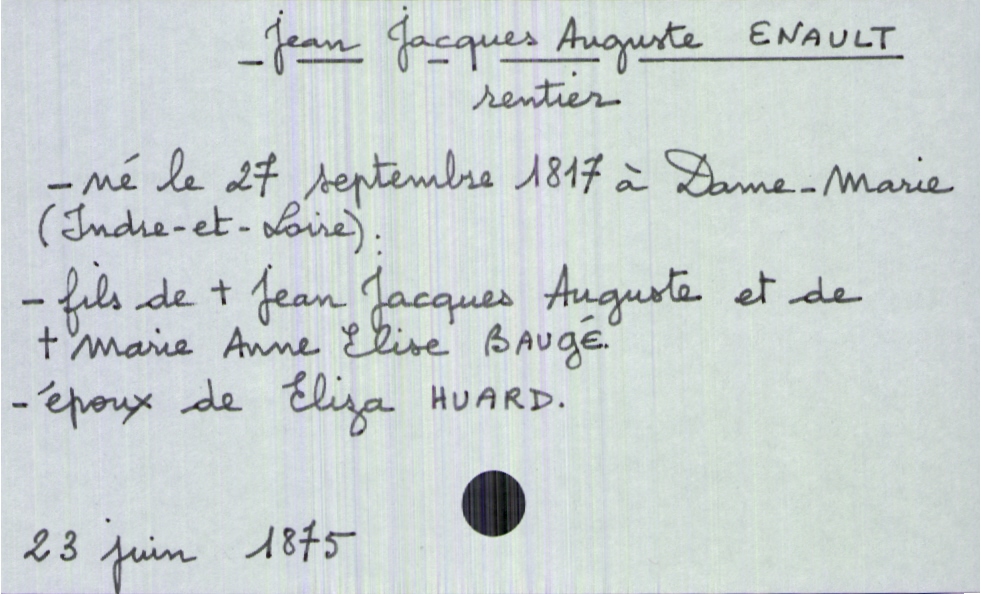 Jean Jacques Auguste ENAULT
rentier
- né le 27 septembre 1817 à Dame-Marie
(Indre-et-Loire).
- fils de + Jean Jacques Auguste et de
+ Marie Anne Elise BAUGÉ.
- époux de Eliza HUARD.
23 juin 1875